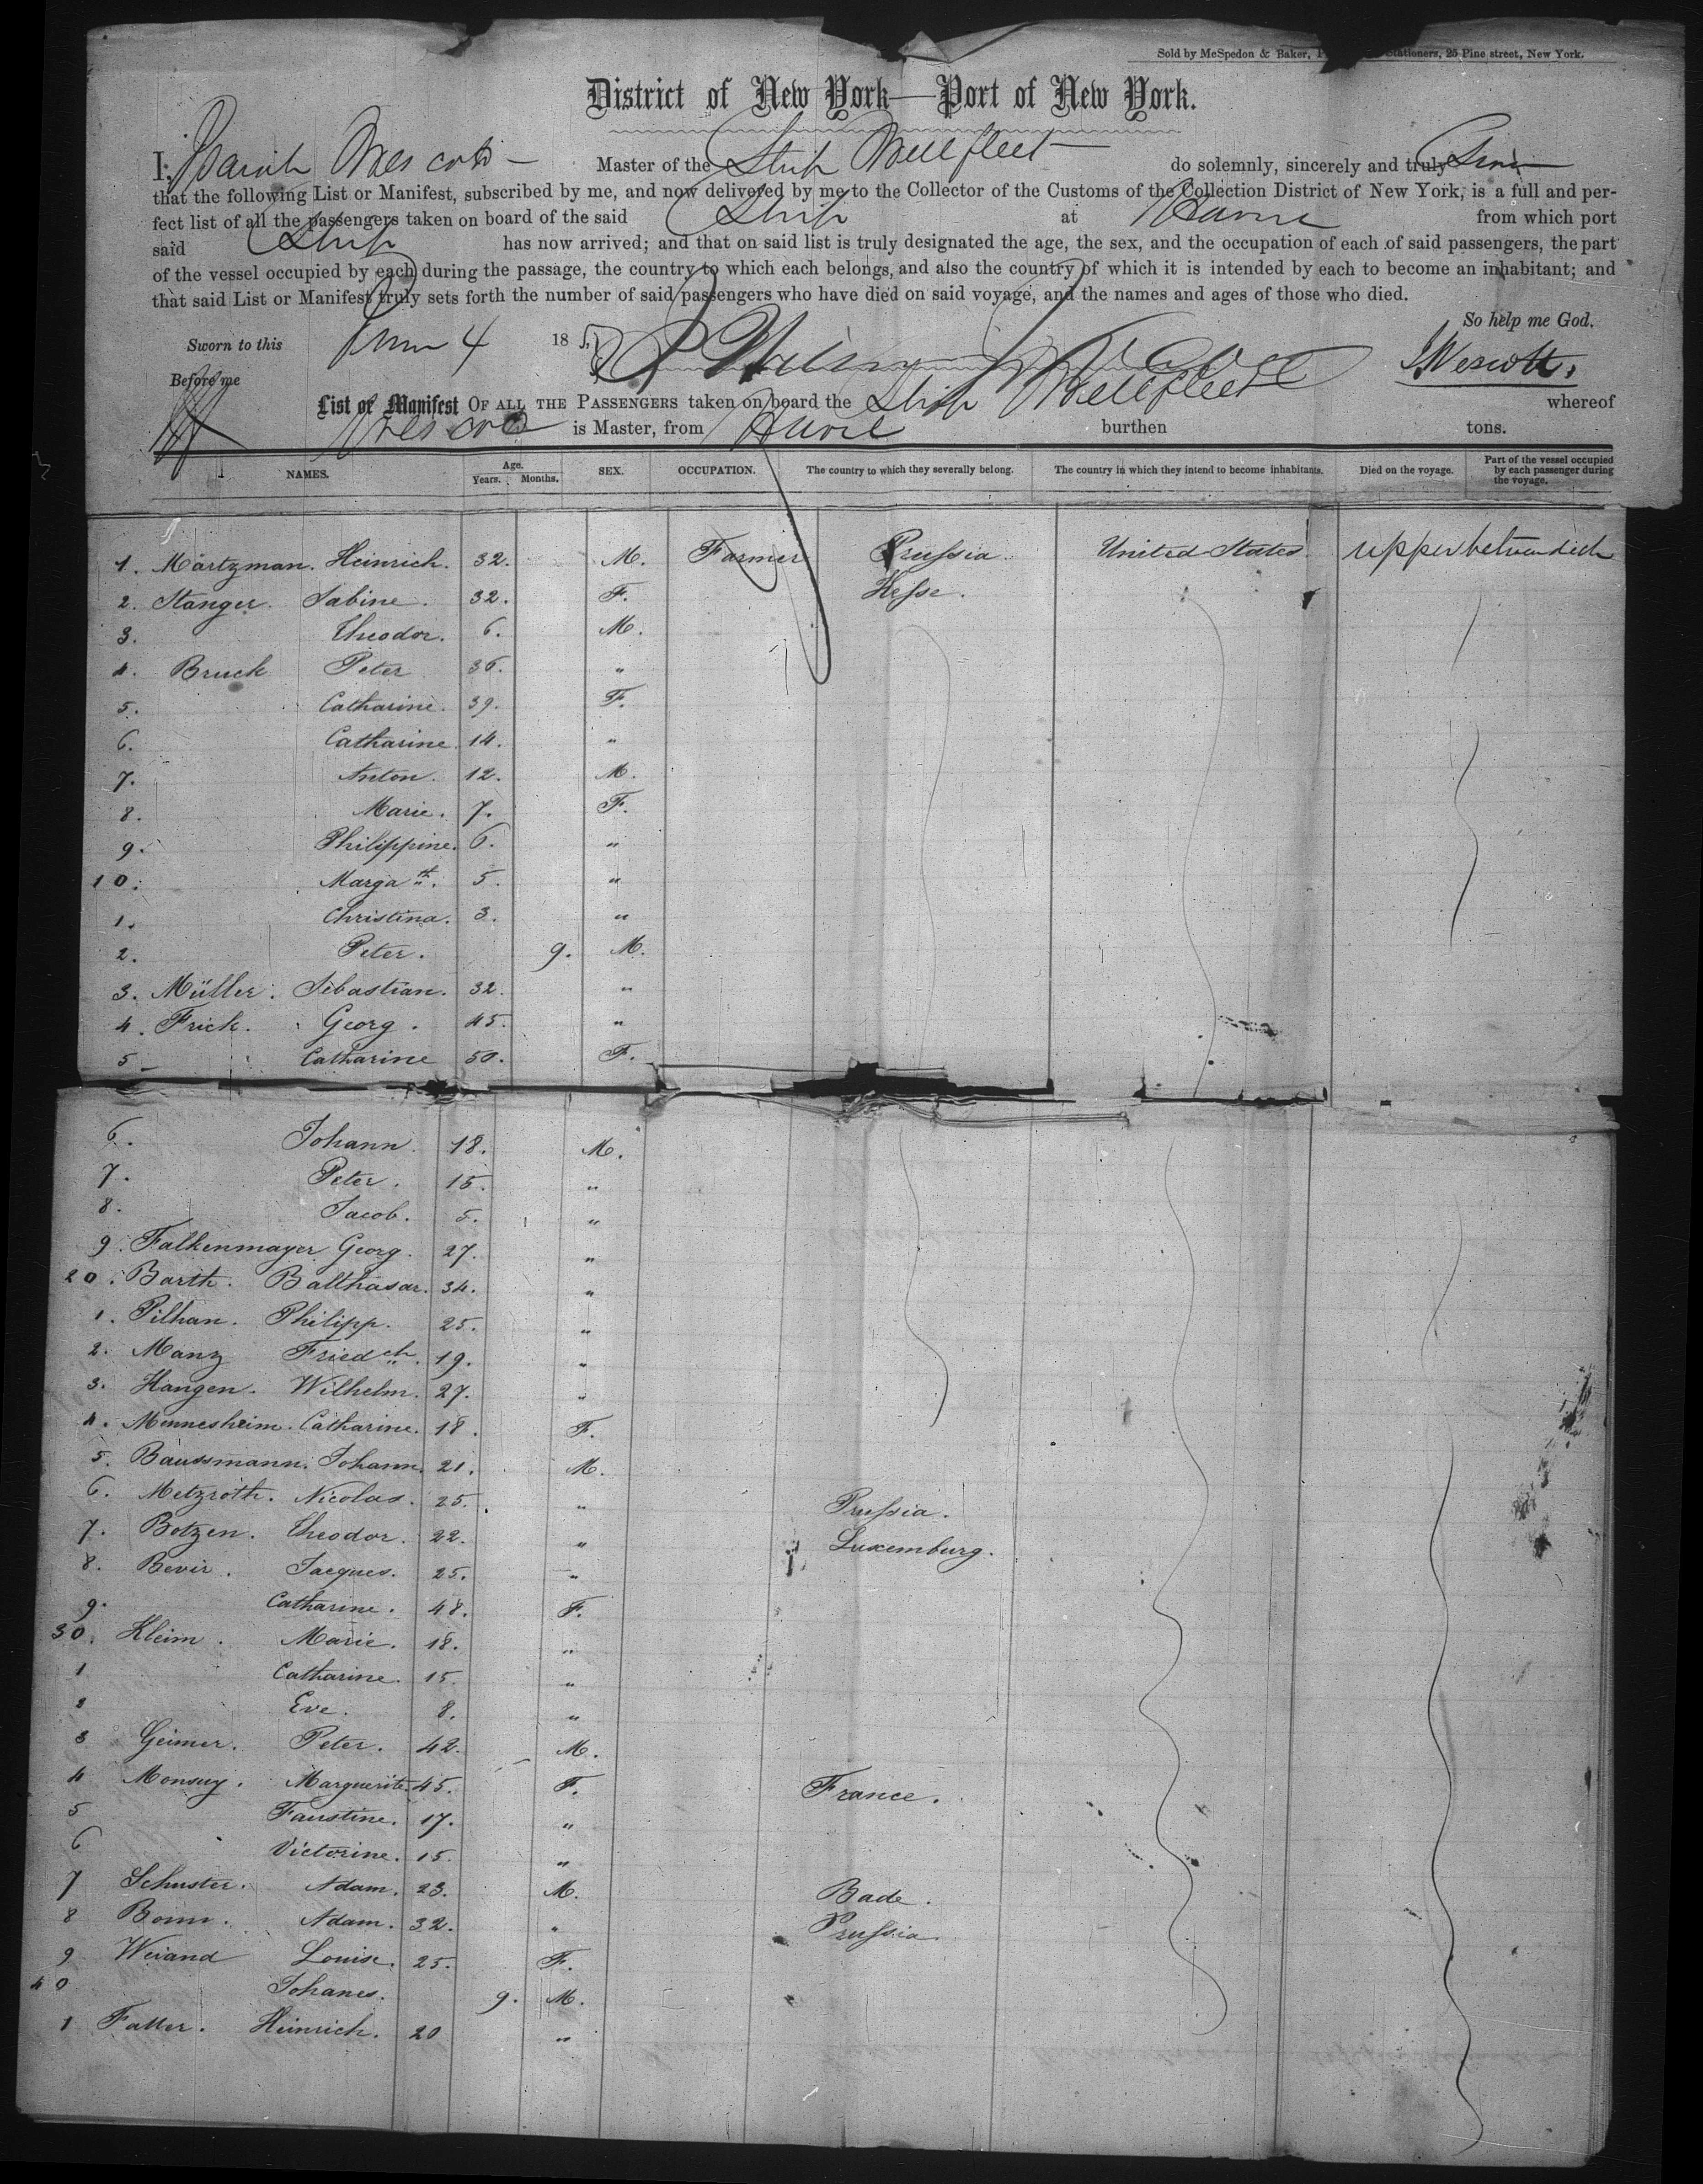 Sold by McSpedon & Baker, Stationers, 25 Pine street, New York.
District of New York—Port of New York.
I, Isaiah Wescott Master of the Ship Wellfleet do solemnly, sincerely and truly Swear
that the following List or Manifest, subscribed by me, and now delivered by me to the Collector of the Customs of the Collection District of New York, is a full and per-
fect list of all the passengers taken on board of the said Ship at Havre from which port
said Ship has now arrived; and that on said list is truly designated the age, the sex, and the occupation of each of said passengers, the part
of the vessel occupied by each during the passage, the country to which each belongs, and also the country of which it is intended by each to become an inhabitant; and
that said List or Manifest truly sets forth the number of said passengers who have died on said voyage, and the names and ages of those who died.
So help me God.
Sworn to this June 4 18
I Wescott.
Before me
List or Manifest OF ALL THE PASSENGERS taken on board the Ship Wellfleet whereof
Wescott is Master, from Havre burthen tons.
NAMES. Age. Years. Months. SEX. OCCUPATION. The country to which they severally belong. The country in which they intend to become inhabitants. Died on the voyage. Part of the vessel occupied by each passenger during the voyage.
1. Märtzman. Heinrich. 32. M. Farmer Prussia. United States. upper between deck
2. Stanger. Sabine. 32. F. Hesse.
3. Theodor. 6. M.
4. Bruck Peter 36. "
5. Catharine. 39. F.
6. Catharine. 14. "
7. Anton. 12. M.
8. Marie. 7. F.
9. Philippine. 6. "
10. Margath. 5. "
1. Christina. 3. "
2. Peter. 9. M.
3. Müller. Sebastian. 32. "
4. Frick. Georg. 45. "
5 Catharine 50. F.
6. Johann 18. M.
7. Peter. 15. "
8. Jacob. 5. "
9. Falkenmayer Georg. 27. "
20. Barth. Balthasar. 34. "
1. Pilhan. Philipp. 25. "
2. Manz Friedch. 19. "
3. Hangen. Wilhelm. 27. "
4. Mennesheim. Catharine. 18. F.
5. Baussmann. Johann. 21. M.
6. Metzroth. Nicolas. 25. " Prussia.
7. Botzen. Theodor. 22. " Luxemburg.
8. Bevir. Jacques. 25. "
9. Catharine. 48. F.
30. Kleim. Marie. 18. "
1 Catharine. 15. "
2 Eve. 8. "
3 Geimer. Peter. 42. M.
4 Monsuy. Marguerite. 45. F. France.
5 Faustine. 17. "
6 Victorine. 15. "
7 Schuster. Adam. 23. M. Bade.
8 Bonn. Adam. 32. " Prussia.
9 Weiand Louise. 25. F.
40 Johanes. 9. M.
1 Fatter. Heinrich. 20 "